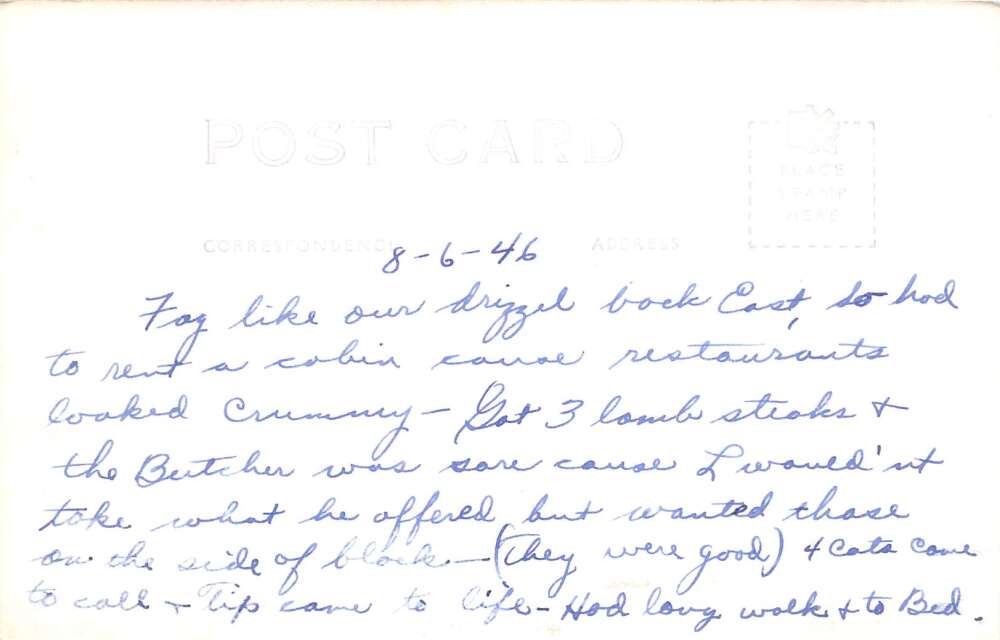 POST CARD
PLACE
STAMP
HERE
CORRESPONDENCE ADDRESS
8-6-46
Fog like our drizzel back East, so had
to rent a cabin cause restaurants
looked Crummy - Got 3 lamb steaks +
the Butcher was sore cause I would'nt
take what he offered, but wanted those
on the side of block. - (They were good) 4 Cats came
to call - Tip came to life - Had long walk + to Bed.